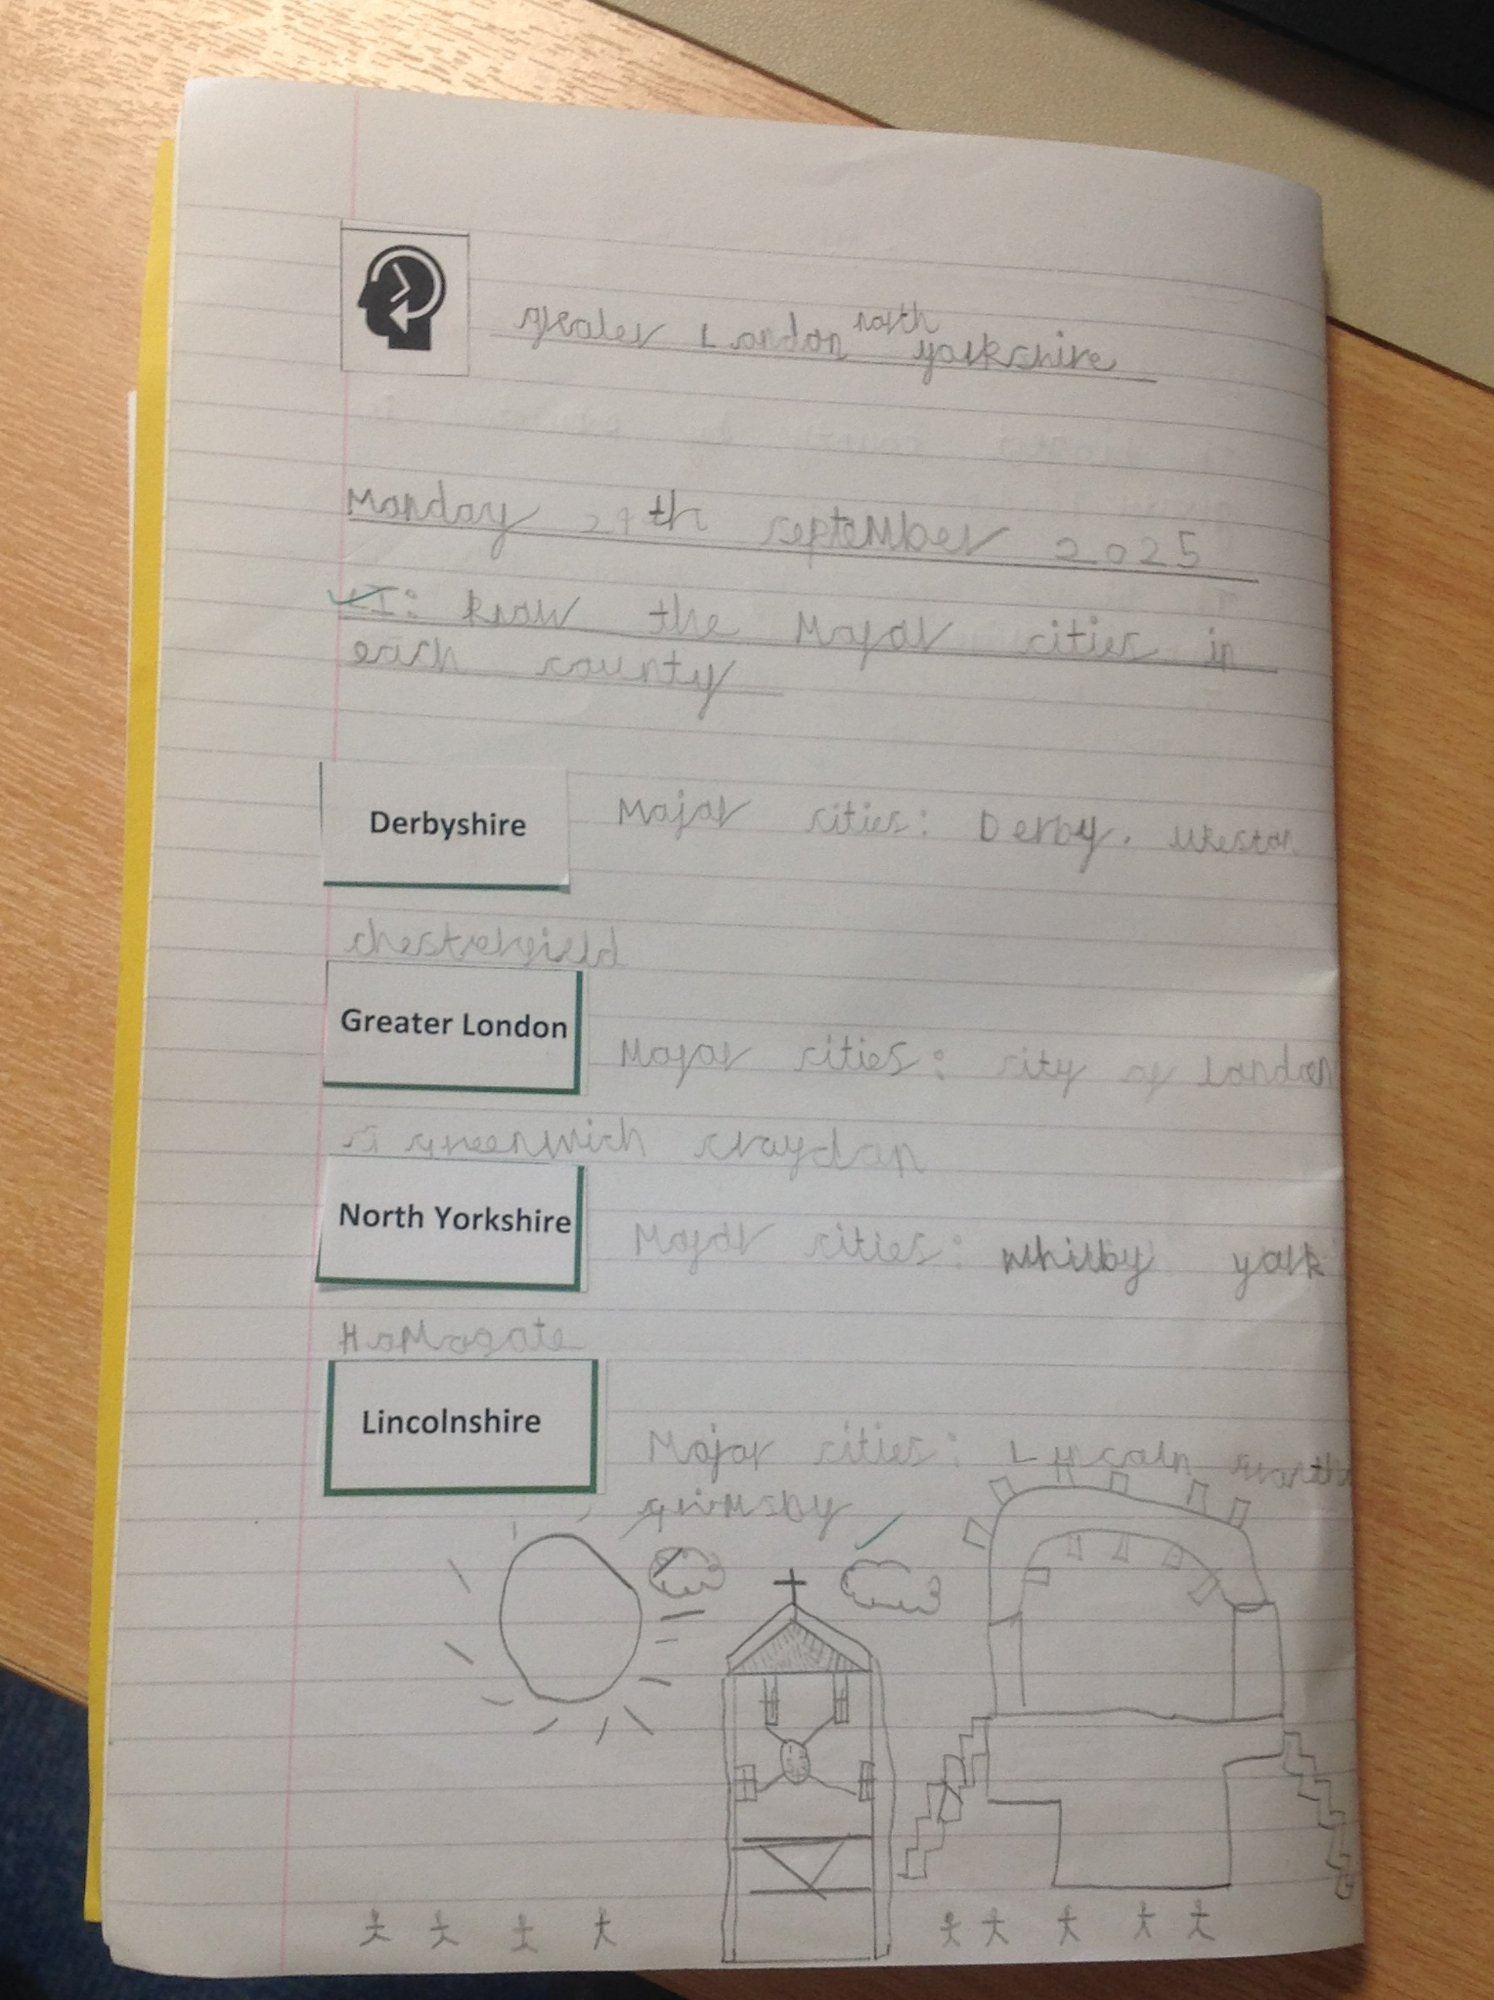 greater London north
yorkshire
Monday 29th september 2025
LI: know the Major cities in
each county
Derbyshire
Major cities: Derby. Ilkeston
chesterfield
Greater London
Major cities: city of London
greenwich croydon
North Yorkshire
Major cities: Whitby york
Harrogate
Lincolnshire
Major cities: Lincoln
grimsby